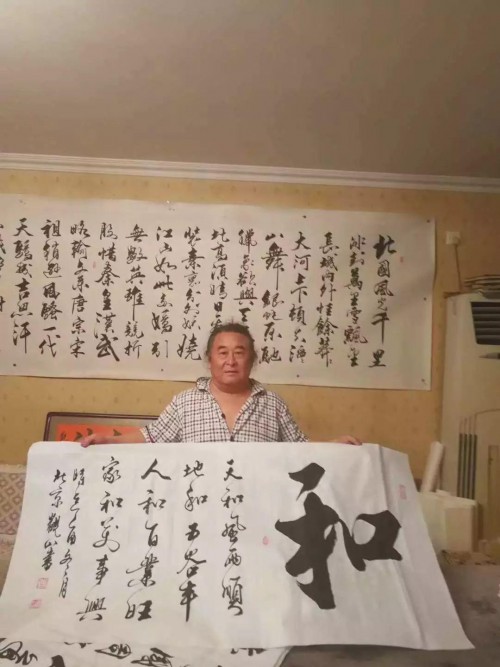 北國風光千里
冰封萬里雪飄望
長城内外惟餘莽
大河上下頓失滔
山舞銀蛇原馳
蠟象欲與天
比高須晴日看
裝素裹分外妖嬈
江山如此多嬌引
無數英雄競折
腰惜秦皇漢武
略輸文采唐宗宋
祖稍遜風騷一代
天驕成吉思汗
和
天和風雨順
地和五谷丰
人和百業旺
家和萬事興
冬月
北京 書